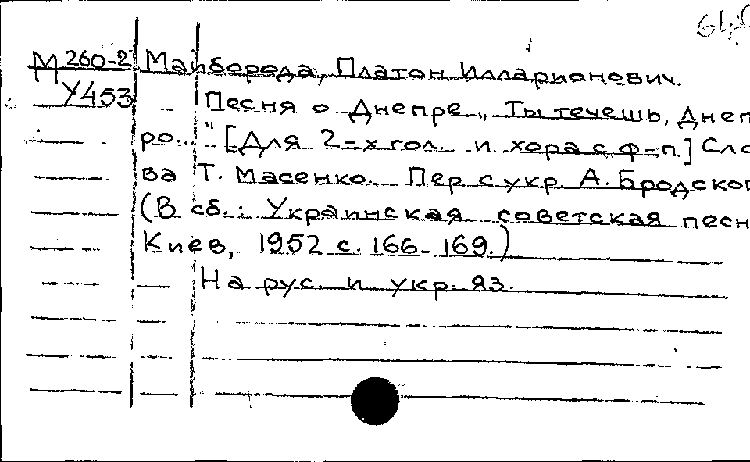 М 260-2 Майборода, Платон Илларионович.
У453 Песня о Днепре „Ты течешь, Днеп
ро..." [Для 2-х гол. и хора с ф-п.] Сло
ва Т. Масенко. Пер с укр А. Бродског
(В сб.: Украинская советская песн
Киев, 1952 с. 166-169.)
На рус. и укр. яз.